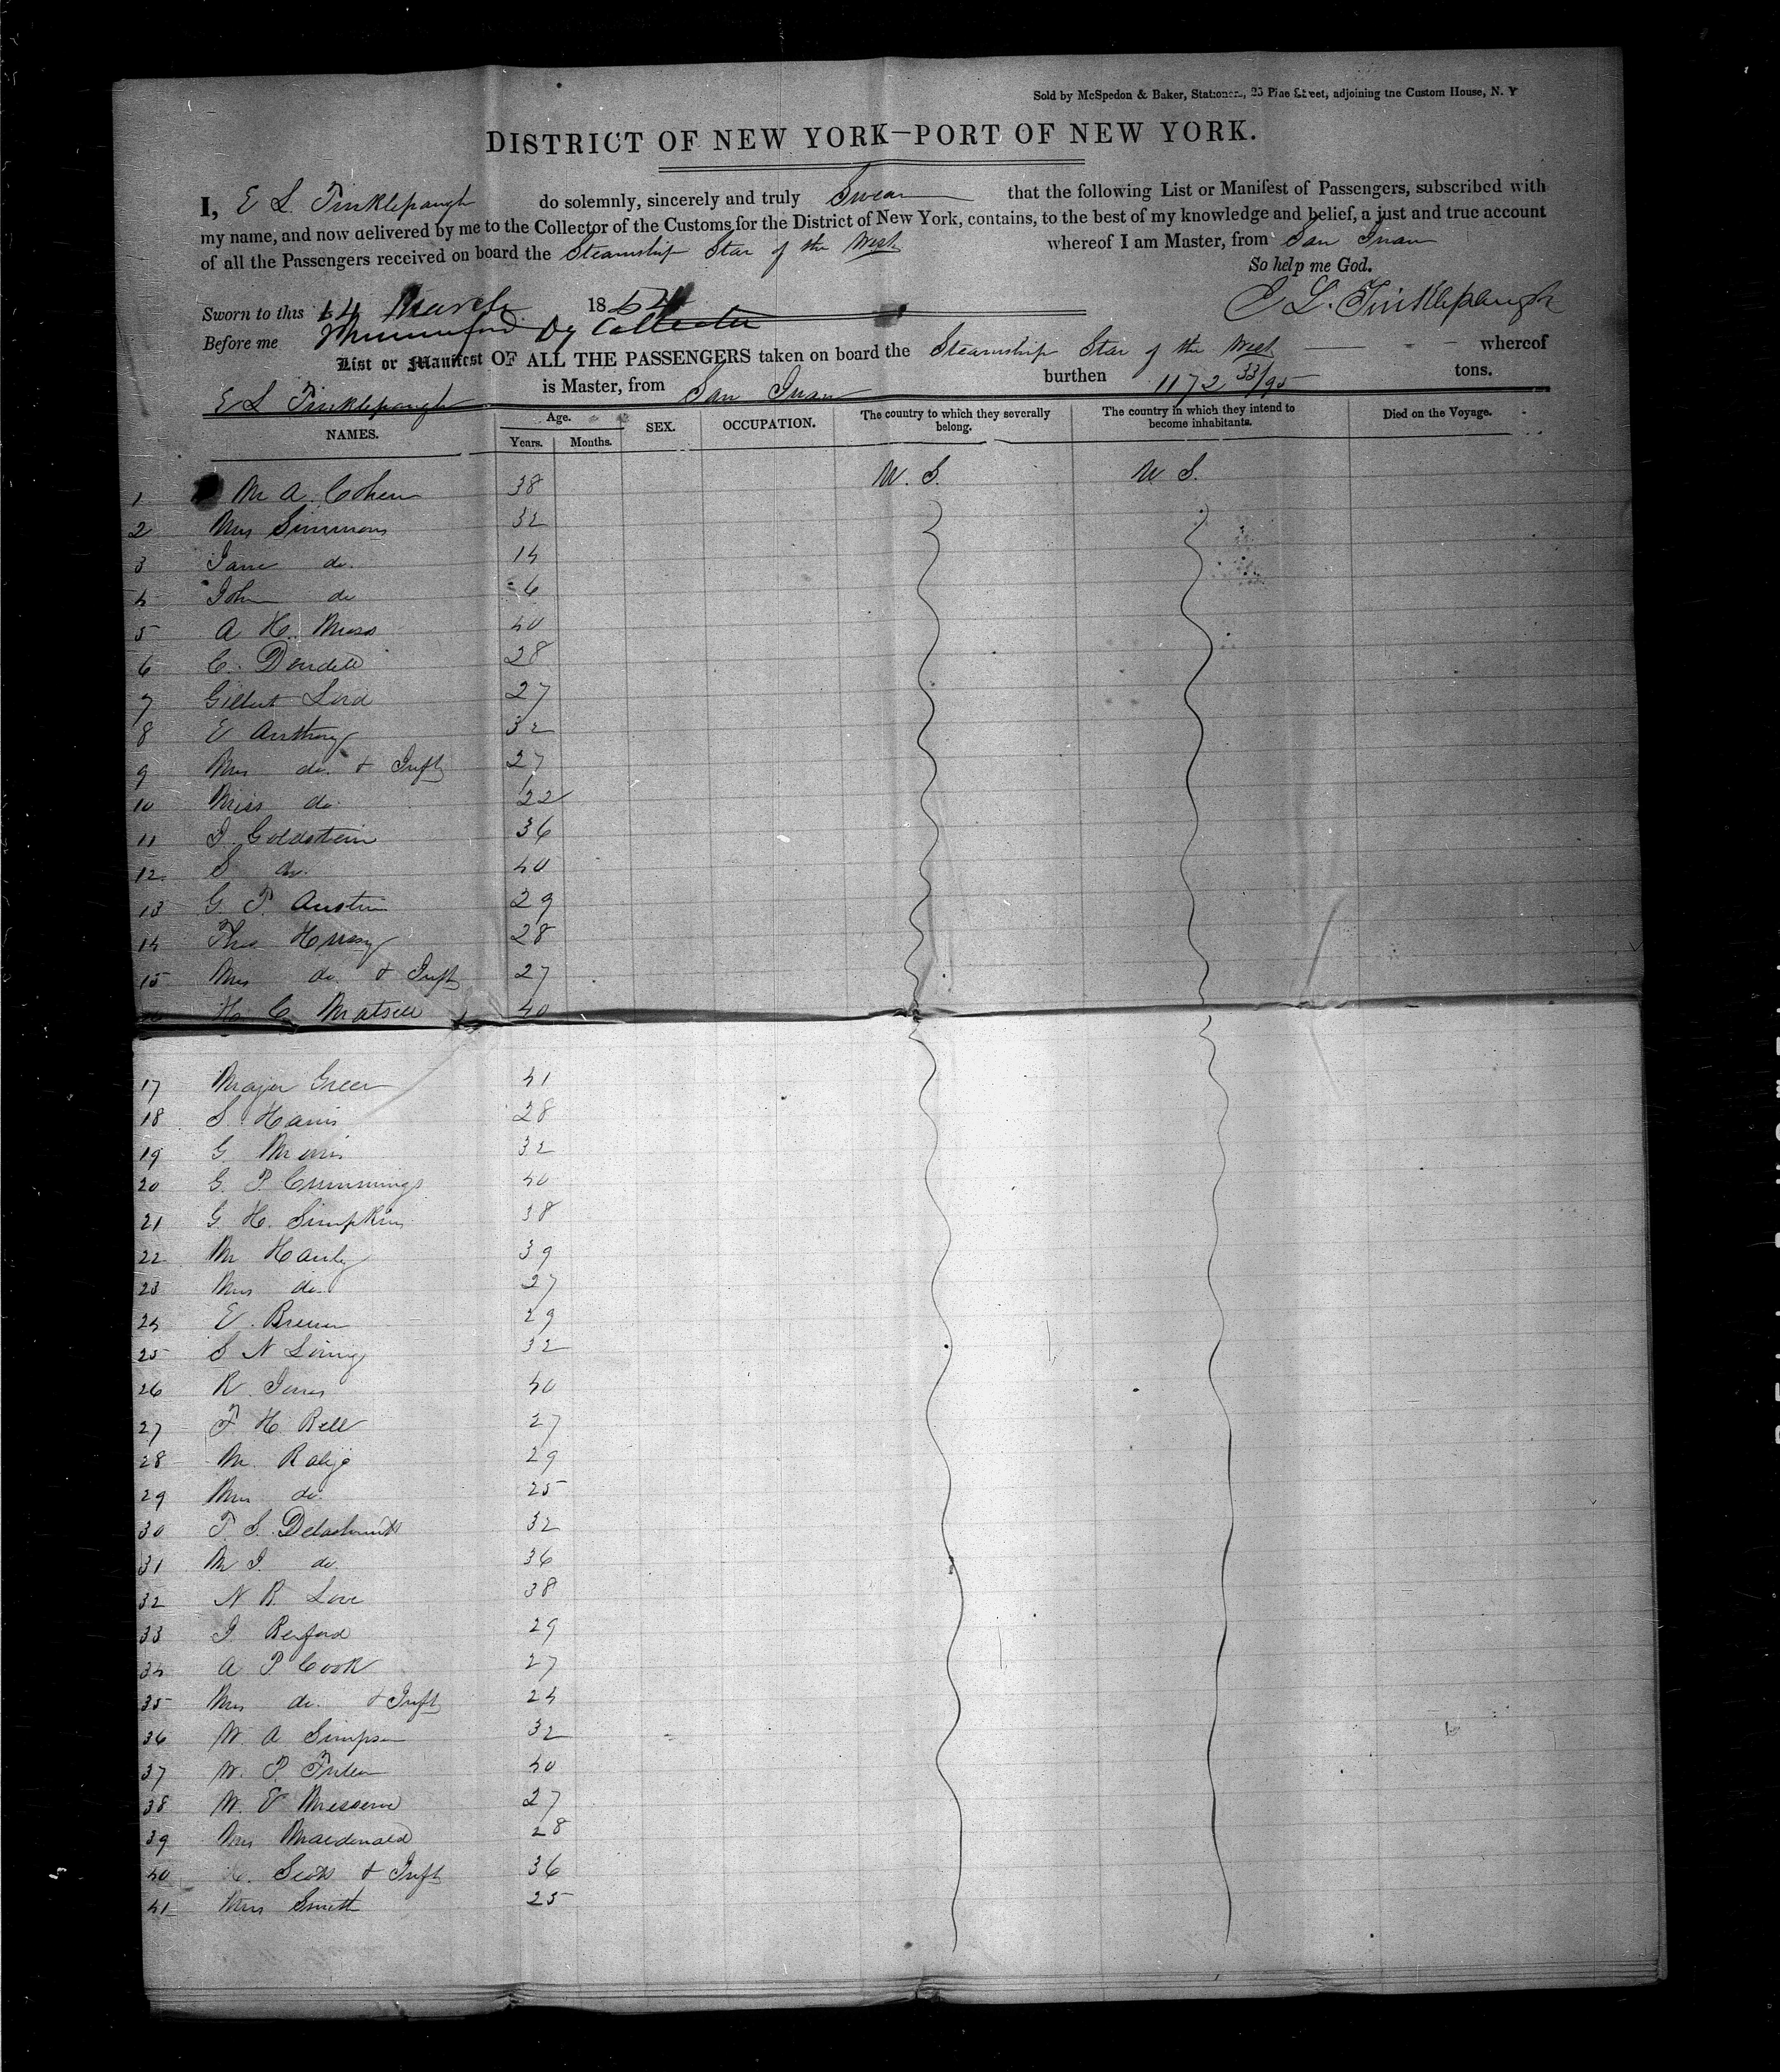 Sold by McSpedon & Baker, Stationers, 25 Pine Street, adjoining the Custom House, N. Y
DISTRICT OF NEW YORK—PORT OF NEW YORK.
I, E L Tinklepaugh do solemnly, sincerely and truly Swear that the following List or Manifest of Passengers, subscribed with
my name, and now delivered by me to the Collector of the Customs for the District of New York, contains, to the best of my knowledge and belief, a just and true account
of all the Passengers received on board the Steamship Star of the West whereof I am Master, from San Juan
So help me God.
Sworn to this 14 March 1854 E L. Tinklepaugh
Before me Dy Collector
List or Manifest OF ALL THE PASSENGERS taken on board the Steamship Star of the West whereof
E L Tinklepaugh is Master, from San Juan burthen 1172 33/95 tons.
NAMES. Age. Years. Months. SEX. OCCUPATION. The country to which they severally belong. The country in which they intend to become inhabitants. Died on the Voyage.
1 M A. Cohen 38 U. S. U S.
2 Mrs Simmons 32
3 Jane do. 14
4 John do 6
5 A H. 40
6 C. 28
7 Gilbert Lord 27
8 E Anthony 32
9 Mrs do. & Inft 27
10 Miss do. 22
11 J Goldstein 36
12. S do. 40
13 G. T. Austin 29
14 Thos Hussey 28
15 Mrs do & Inft 27
16 H. C. Matsell 40
17 Major Green 41
18 S. Harris 28
19 G Morris 32
20 G. P. Cummings 40
21 G. H. Simpkins 38
22 M Hanly 39
23 Mrs do. 27
24 E. Brewer 29
25 S N Loring 32
26 R. Jones 40
27 F H. Bell 27
28 M. 29
29 Mrs do. 25
30 T. S. Delashmutt 32
31 M J. do. 36
32 N R. Love 38
33 J 29
34 A P Cook 27
35 Mrs do. & Inft 24
36 W. A Simpson 32
37 W. P. 40
38 W. E Messerve 27
39 Mrs Macdonald 28
40 Scott & Inft 36
41 Mrs Smith 25